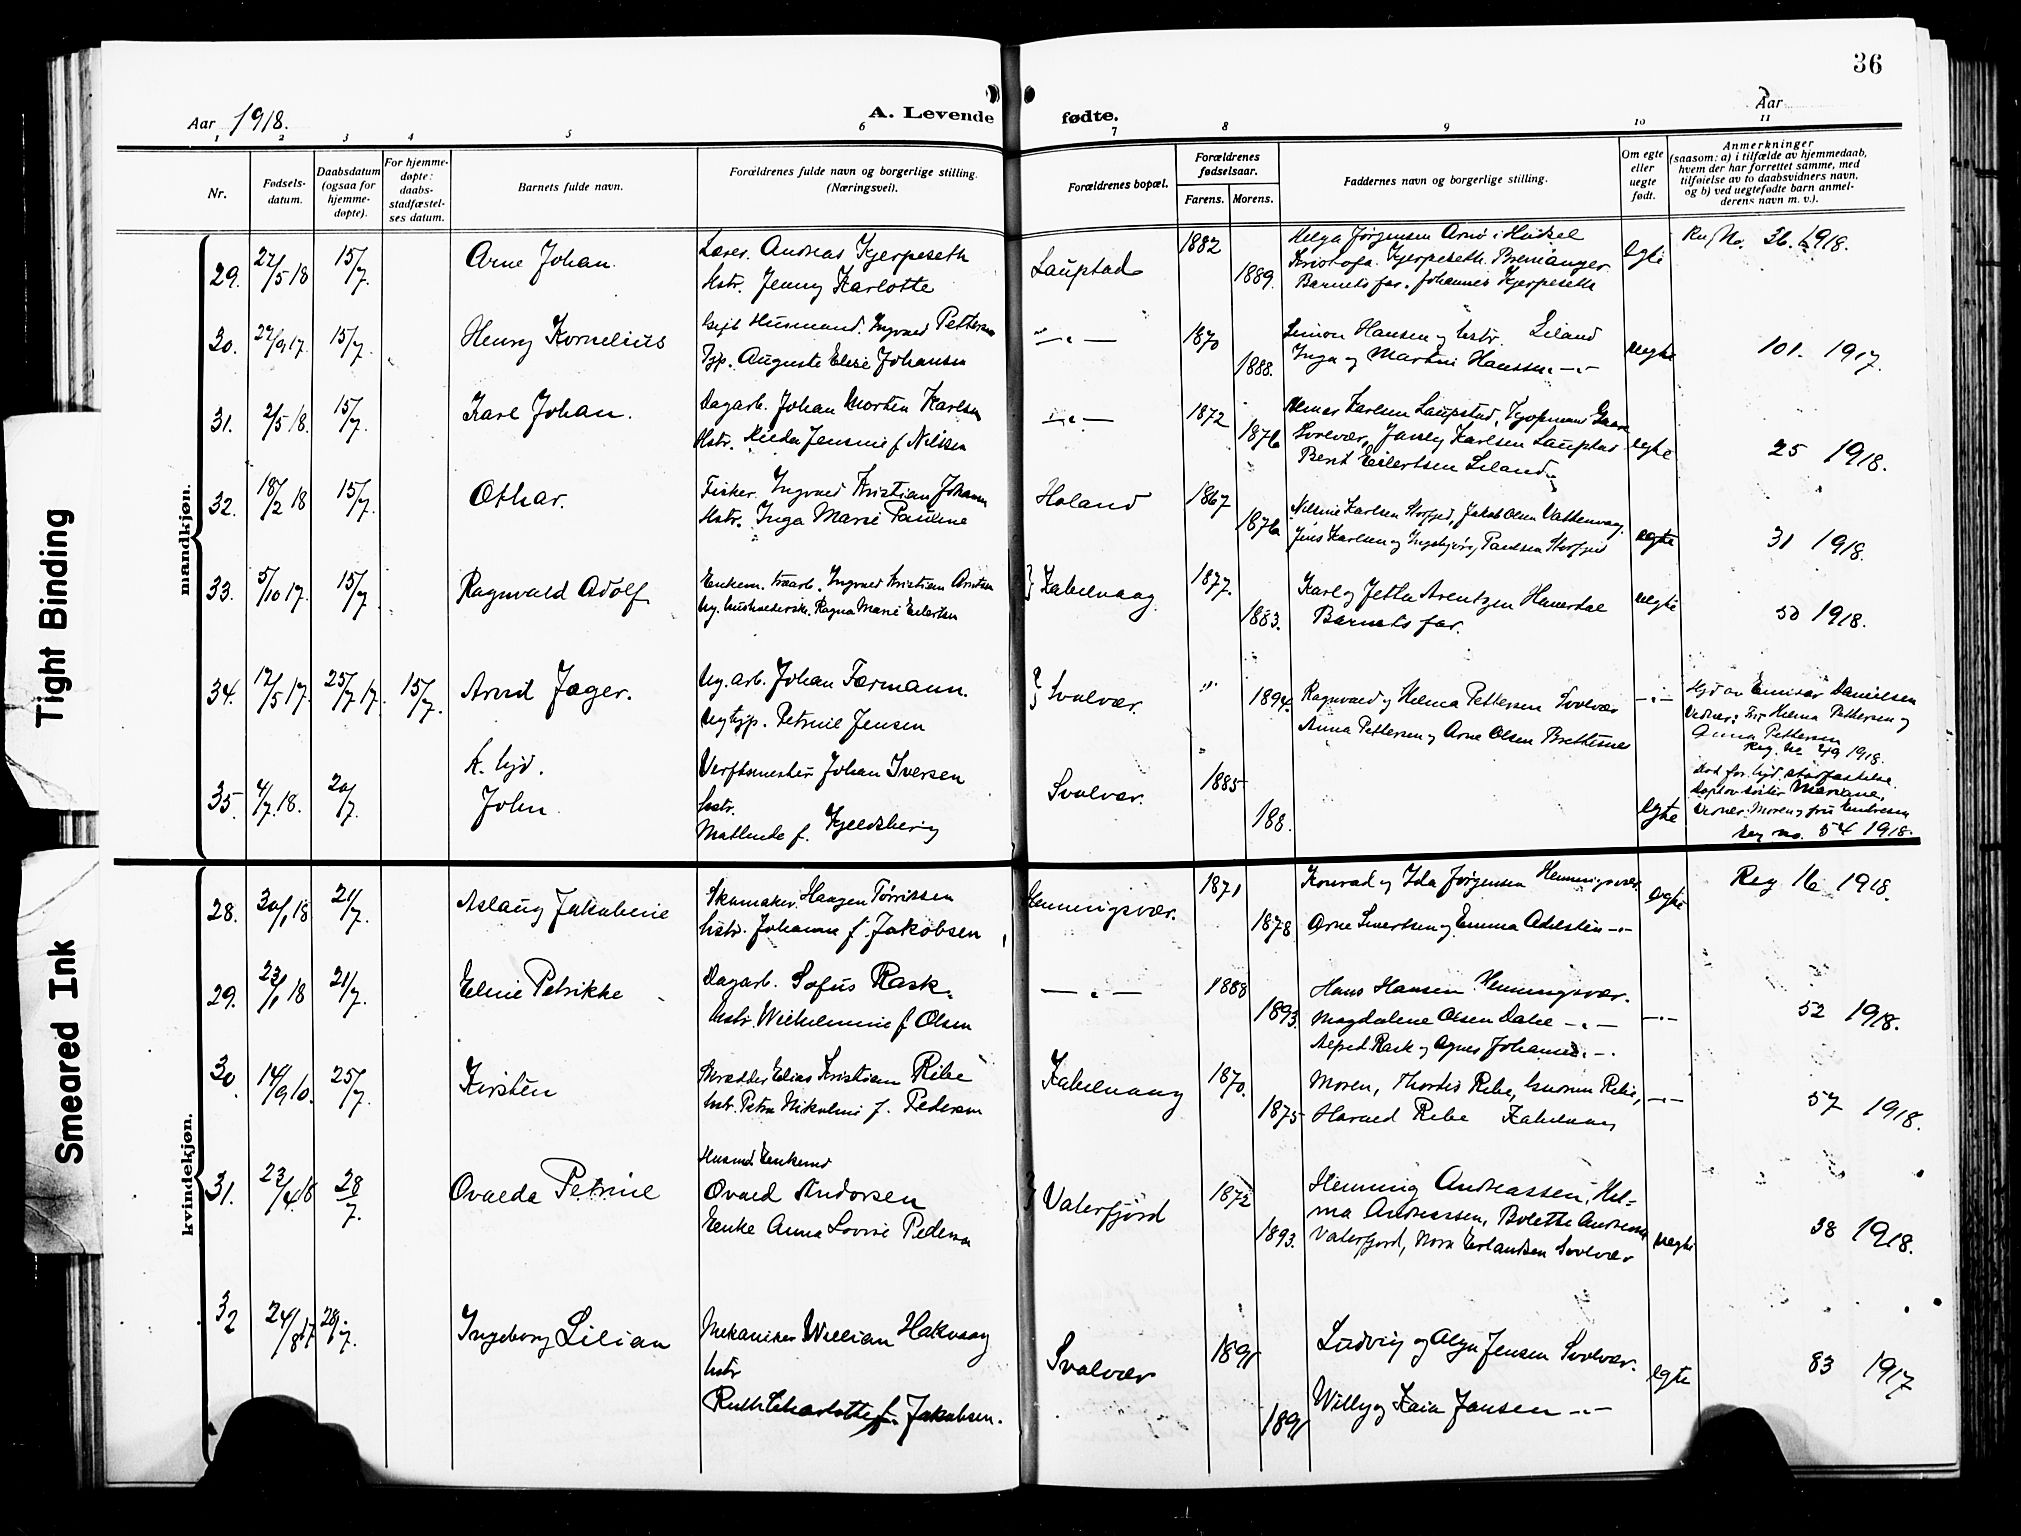 36
Aar 1918.
A. Levende fødte.
Aar
1 2 3 4 5 6 7 8 9 10 11
Nr.
Fødsels-
datum.
Daabsdatum
(ogsaa for
hjemme-
døpte).
For hjemme-
døpte:
daabs-
stadfæstel-
ses datum.
Barnets fulde navn.
Forældrenes fulde navn og borgerlige stilling.
(Næringsvei).
Forældrenes bopæl.
Forældrenes
fødselsaar.
Farens. Morens.
Faddernes navn og borgerlige stilling.
Om egte
eller
uegte
født.
Anmerkninger
(saasom: a) i tilfælde av hjemmedaab,
hvem der har forrettet samme, med
tilføielse av to daabsvidners navn,
og b) ved uegtefødte barn anmel-
derens navn m. v.).
mandkjøn.
29. 22/5 18 15/7. Arne Johan. Lærer. Andreas Kjerpeseth
Hstr. Jenny Karlotte
Laupstad 1882 1889.
Helga Jørgensen
Kristofa. Kjerpeseth. Brenanger.
Barnets far. Johannes Kjerpeseth
egte No. 36. 1918.
30. 27/9 17. 15/7. Henry Kornelius Husmand. Ingvald Pettersen
Auguste Elise Johansen
— " — 1870 1888.
Simon Hansen og hstr. Liland
Inga og Martin Hanssen — " —
uegte 101. 1917.
31. 2/5 18. 15/7. Karl Johan. Dagarb. Johan Morten Karlsen
Hstr. Jensine f. Nilsen
— " — 1872 1876
Karlsen Laupstad,
Svolvær, Karlsen Laupstad
Berit Eilertsen Liland
egte 25 1918.
32. 18/2 18 15/7. Othar. Fisker. Ingvald Kristian Johansen
Hstr. Inga Marie Pauline
Holand 1867 1876
Karlsen Storfjed, Jakob Olsen Vatterwaag.
Jens Karlsen og Ingebjørg Paulsen Storfjed
egte 31 1918.
33. 5/10 17. 15/7. Ragnvald Adolf Enkem. Ingvald Kristian Arntsen
Ug. husholderske. Ragna Marie Eilertsen
} Kabelvaag. 1877. 1883.
Karl og Jetta Arentzen
Barnets far.
uegte 50 1918.
34. 17/5 17. 25/7 17. 15/7. Arvid Jæger. Ug. arb. Johan Færmann.
Petrine Jensen
} Svolvær. " 1894.
Ragnvald og Helma Pettersen Svolvær
Anna Pettersen og Arne Olsen Brettesnes
— " — Danielsen
Vidner: Helma Pettersen og
Anna Pettersen
Reg. No 1918.
35. 4/7. 18. 20/7. John. Verftsmester Johan Iversen
hstr.
Matilde f. Kjeldsberg
Svolvær. 1885 188.
egte
Mariane,
Vidner: Moren og fru
Reg no. 54 1918.
kvindekjøn.
28. 30/1 18 21/7. Aslaug Jakobine Skomaker. Haagen Tørrissen
hstr. Johanne f. Jakobsen
Henningsvær. 1871 1878
Konrad og Ida Jørgensen Henningsvær.
Arne Sivertsen og Emma Adelsten — " —
egte Reg 16 1918.
29. 23/1 18 21/7. Eline Petrikke Dagarb. Sofus Rask.
hstr. Wilhelmine f. Olsen
— " — 1888 1893.
Hans Hansen Henningsvær.
Magdalene Olsen Dahl — " —
Alfred Rask og Agnes Johansen — " —
— " — 52 1918.
30 14/9 10. 25/7. Kirsten Skrædder Elias Kristian Ribe
hstr. Petra Nikoline f. Pedersen
Kabelvaag 1870. 1875
Moren, Thordis Ribe, Gudrun Ribe,
Harald Ribe Kabelvaag
— " — 57 1918.
31. 23/4 18 28/7. Ovalda Petrine Husmd. Enkemd
Ovald Andorsen
Enke Anna Lovise Pedersen
} Vaterfjord 1872 1893.
Henning Andreassen, Hel-
ma Andreassen, Bolette Andreassen
Vaterfjord, Nora Erlandsen Svolvær
uegte 38 1918.
32 24/8 17 28/7. Ingeborg Lilian Mekaniker William Hakvaag
hstr
Ruth Charlotte f. Jakobsen.
Svolvær 1891 1891
Ludvig og Jensen Svolvær.
Willy og Kaia Jansen — " —
egte 83 1917
Tight Binding
Smeared Ink